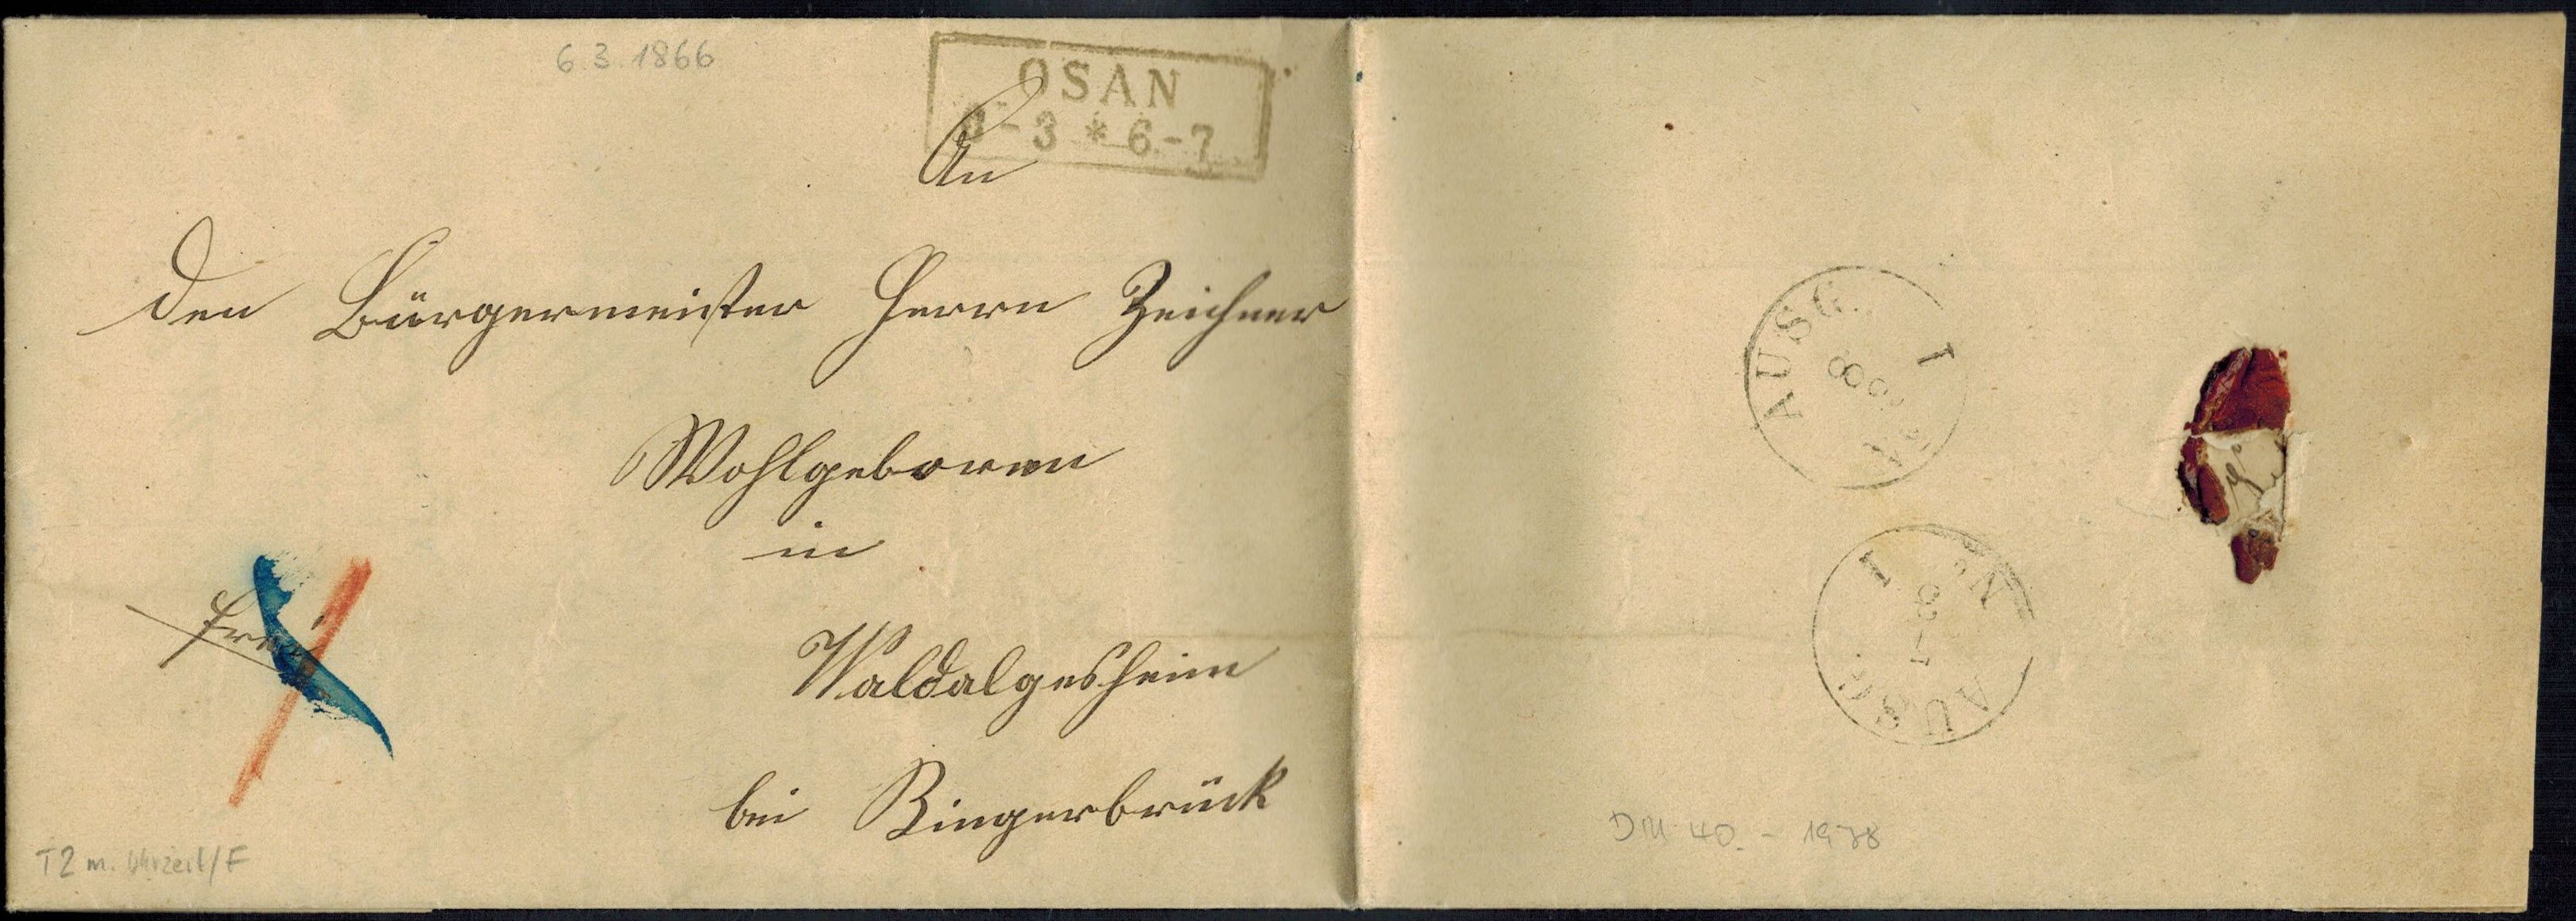 6.3.1866
OSAN
3 * 6-7
An
den Bürgermeister Herrn Zeichner
Wohlgeboren
in
frei
Waldalgesheim
bei Bingerbrück
T2 m. Uhrzeit/F
AUSG.
I
8
N
I
8
AUSG.
DM 40.- 1978